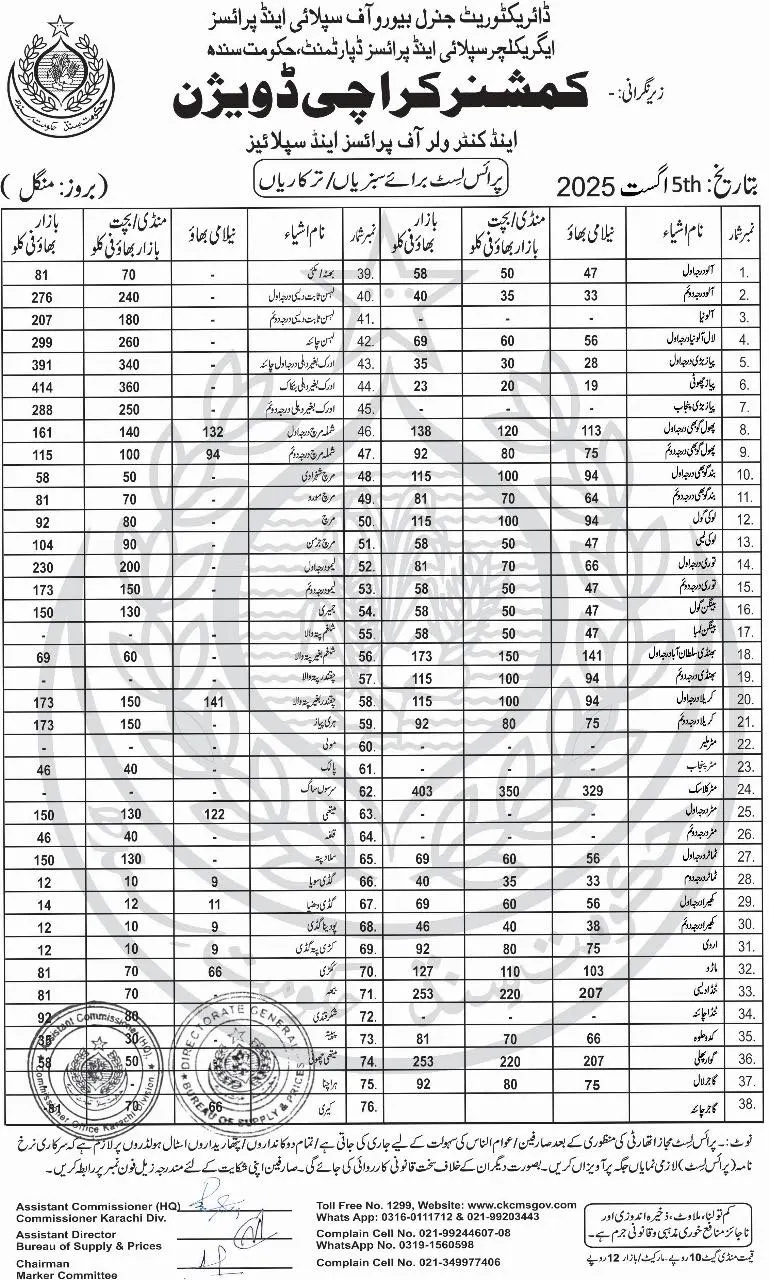 ڈائریکٹوریٹ جنرل بیورو آف سپلائی اینڈ پرائسز
ایگریکلچر سپلائی اینڈ پرائسز ڈپارٹمنٹ، حکومت سندھ
زیرنگرانی: - کمشنر کراچی ڈویژن
اینڈ کنٹرولر آف پرائسز اینڈ سپلائیز
تاریخ: 5th اگست 2025 پرائس لسٹ برائے سبزیاں/ترکاریاں (بروز: منگل)
نمبر شمار نام اشیاء نیلامی بھاؤ منڈی/بچت بازار بھاؤ فی کلو بازار بھاؤ فی کلو نمبر شمار نام اشیاء نیلامی بھاؤ منڈی/بچت بازار بھاؤ فی کلو بازار بھاؤ فی کلو
1. آلو درجہ اول 47 50 58 39. بھٹہ/مکئی - 70 81
2. آلو درجہ دوئم 33 35 40 40. لہسن ثابت دیسی درجہ اول - 240 276
3. آلو نیا - - - 41. لہسن ثابت دیسی درجہ دوئم - 180 207
4. لال آلو نیا درجہ اول 56 60 69 42. لہسن چائنہ - 260 299
5. پیاز بڑی درجہ اول 28 30 35 43. ادرک بغیر دھلی درجہ اول چائنہ - 340 391
6. پیاز چھوٹی 19 20 23 44. ادرک بغیر دھلی بنکاک - 360 414
7. پیاز بڑی پنجاب - - - 45. ادرک بغیر دھلی درجہ دوئم - 250 288
8. پھول گوبھی درجہ اول 113 120 138 46. شملہ مرچ درجہ اول 132 140 161
9. پھول گوبھی درجہ دوئم 75 80 92 47. شملہ مرچ درجہ دوئم 94 100 115
10. بند گوبھی درجہ اول 94 100 115 48. مرچ شہزادی - 50 58
11. بند گوبھی درجہ دوئم 64 70 81 49. مرچ مورو - 70 81
12. لوکی گول 94 100 115 50. مرچ - 80 92
13. لوکی لمبی 47 50 58 51. مرچ جرمن - 90 104
14. توری درجہ اول 66 70 81 52. لیمو درجہ اول - 200 230
15. توری درجہ دوئم 47 50 58 53. لیمو درجہ دوئم - 150 173
16. بینگن گول 47 50 58 54. جمیری - 130 150
17. بینگن لمبا 47 50 58 55. شلغم پتہ والا - - -
18. بھنڈی سلطان آباد درجہ اول 141 150 173 56. شلغم بغیر پتہ والا - 60 69
19. بھنڈی درجہ دوئم 94 100 115 57. چقندر پتہ والا - - -
20. کریلا درجہ اول 94 100 115 58. چقندر بغیر پتہ والا 141 150 173
21. کریلا درجہ دوئم 75 80 92 59. ہری پیاز - 150 173
22. مٹر ملیر - - - 60. مولی - - -
23. مٹر پنجاب - - - 61. پالک - 40 46
24. مٹر کلاسک 329 350 403 62. سرسوں ساگ - - -
25. مٹر درجہ اول - - - 63. میتھی 122 130 150
26. مٹر درجہ دوئم - - - 64. قلفہ - 40 46
27. ٹماٹر درجہ اول 56 60 69 65. سلاد پتہ - 130 150
28. ٹماٹر درجہ دوم 33 35 40 66. گڈی سویا 9 10 12
29. کھیرا درجہ اول 56 60 69 67. گڈی دھنیا 11 12 14
30. کھیرا درجہ دوئم 38 40 46 68. پودینا گڈی 9 10 12
31. اروی 75 80 92 69. کڑی پتہ گڈی 9 10 12
32. ماڑو 103 110 127 70. ککڑی 66 70 81
33. ٹنڈا دیسی 207 220 253 71. - 70 81
34. ٹنڈا چائنہ - - - 72. شکرقندی - 80 92
35. کدو حلوہ 66 70 81 73. پپیتہ 30 35
36. گوار پھلی 207 220 253 74. میتھی چھوٹی 50 58
37. گاجر لال 75 80 92 75. ہرا چنا
38. گاجر چائنہ 76. کیری 66 70 81
نوٹ:- پرائس لسٹ مجاز اتھارٹی کی منظوری کے بعد صارفین/عوام الناس کی سہولت کے لیے جاری کی جاتی ہے/تمام دوکانداروں/پتھاریداروں اسٹال ہولڈروں پر لازم ہے کہ سرکاری نرخ
نامہ (پرائس لسٹ) لازمی نمایاں جگہ پر آویزاں کریں۔ بصورت دیگر ان کے خلاف سخت قانونی کارروائی کی جائے گی۔ صارفین اپنی شکایت کے لئے مندرجہ زیل فون نمبر پر رابطہ کریں۔
Assistant Commissioner (HQ)
Commissioner Karachi Div.
Assistant Director
Bureau of Supply & Prices
Chairman
Marker Committee
Toll Free No. 1299, Website: www.ckcmsgov.com
Whats App: 0316-0111712 & 021-99203443
Complain Cell No. 021-99244607-08
WhatsApp No. 0319-1560598
Complain Cell No. 021-349977406
کم تولنا، ملاوٹ، ذخیرہ اندوزی اور
ناجائز منافع خوری مذہبی و قانونی جرم ہے۔
قیمت منڈی گیٹ 10 روپے - مارکیٹ/بازار 12 روپے
Assistant Commissioner (HQ)
Commissioner Office Karachi Division
DIRECTORATE GENERAL
BUREAU OF SUPPLY & PRICES
حکومت سندھ